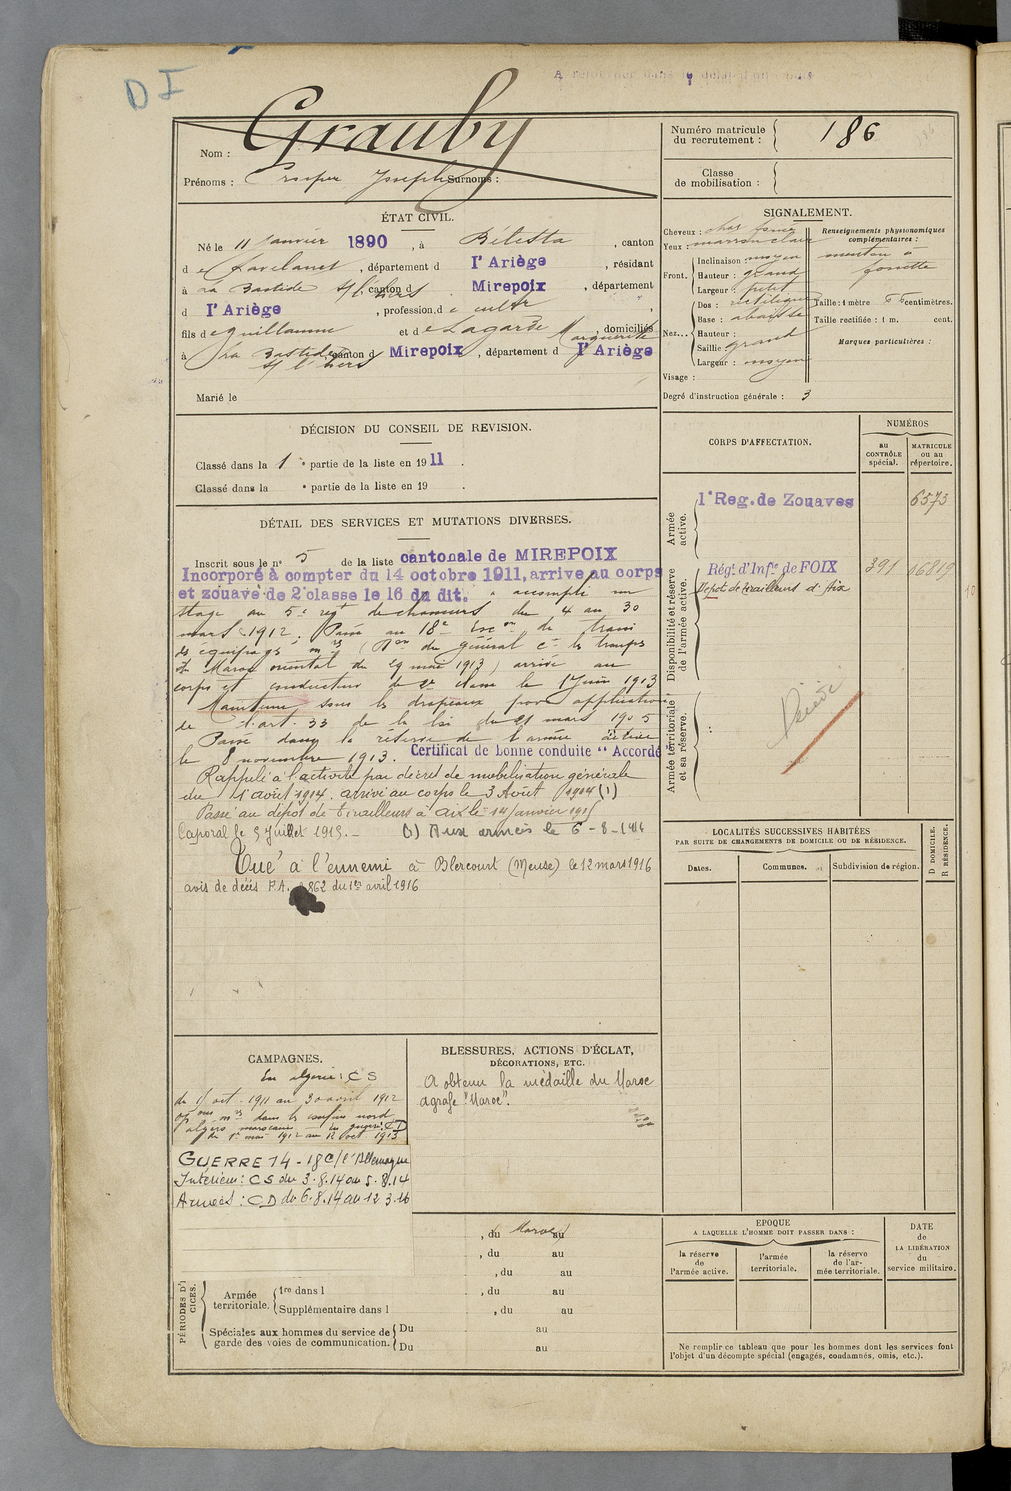 D I
Nom : Grauby
Prénoms : Prosper Joseph Surnoms :
Numéro matricule
du recrutement : 186
Classe
de mobilisation :
ÉTAT CIVIL.
Né le 11 Janvier 1890, à Bélesta, canton
d e Lavelanet, département d l'Ariège, résidant
à La Bastide s/ l'hers canton d Mirepoix, département
d l'Ariège, profession d e cultr
fils d e Guillaume et d e Lagarde Marguerite, domiciliés
à La Bastide s/ l'hers canton d Mirepoix, département d l'Ariège
Marié le
SIGNALEMENT.
Cheveux : chat. foncé
Yeux : marron clair
Front. Inclinaison : moyen
Hauteur : grand
Largeur : petit
Nez... Dos : rectiligne
Base : abaissée
Hauteur :
Saillie grand
Largeur : moyen
Visage :
Renseignements physionomiques
complémentaires :
menton à
fossette
Taille : 1 mètre centimètres.
Taille rectifiée : 1 m. cent.
Marques particulières :
Degré d'instruction générale : 3
DÉCISION DU CONSEIL DE REVISION.
Classé dans la 1 e partie de la liste en 1911.
Classé dans la e partie de la liste en 19 .
DÉTAIL DES SERVICES ET MUTATIONS DIVERSES.
Inscrit sous le n° 5 de la liste cantonale de MIREPOIX
Incorporé à compter du 14 octobre 1911, arrive au corps
et zouave de 2e classe le 16 du dit. a accompli un
stage au 5e régt de chasseurs du 4 au 30
mars 1912. Passé au 18e de train
des équipages mres ( du général ct les troupes
du Maroc oriental du 29 mai 1913) arrivé au
corps et conducteur de 2e classe le 1 Juin 1913
Maintenu sous les drapeaux par application
de l'art. 33 de la loi du 21 mars 1905
Passé dans la réserve de l'armée active
le 8 novembre 1913. Certificat de bonne conduite "Accordé
Rappelé à l'activité par décret de mobilisation générale
du 1er août 1914. arrivé au corps le 3 Août 1914 (1)
Passé au dépôt de tirailleurs à Aix le 14 Janvier 1915
Caporal le 5 Juillet 1915. — (1) Aux armées le 6-8-1914
Tué à l'ennemi à Blercourt (Meuse) le 12 mars 1916
avis de décès F.A. 862 du 1er avril 1916
CORPS D'AFFECTATION.
NUMÉROS
au
CONTRÔLE
spécial.
MATRICULE
ou au
répertoire.
Armée
active.
1e Reg. de Zouaves 6573
Disponibilité et réserve
de l'armée active.
Régt. d'Infie de FOIX 391 06819
Dépôt de tirailleurs d'Aix
Armée territoriale
et sa réserve.
LOCALITÉS SUCCESSIVES HABITÉES
PAR SUITE DE CHANGEMENTS DE DOMICILE OU DE RÉSIDENCE.
Dates. Communes. Subdivision de région.
D DOMICILE.
R RÉSIDENCE.
CAMPAGNES.
En algérie : CS
de 1 oct. 1911 au 30 avril 1912
opons mres dans les confins nord
algéro marocains en guerre CD
du 1er mai 1912 au 12 oct. 1913
GUERRE 14-18 C/ l'Allemagne
Intérieur : CS du 3.8.14 au 5.8.14
Armées : CD du 6.8.14 au 12.3.16
BLESSURES, ACTIONS D'ÉCLAT,
DÉCORATIONS, ETC.
A obtenu la médaille du Maroc
agrafe "Maroc".
PÉRIODES D'
CICES.
Maroc
, du au
, du au
, du au
Armée
territoriale.
1re dans l , du au
Supplémentaire dans l , du au
Spéciales aux hommes du service de
garde des voies de communication.
Du au
Du au
EPOQUE
A LAQUELLE L'HOMME DOIT PASSER DANS :
la réserve
de
l'armée active.
l'armée
territoriale.
la réserve
de l'ar-
mée territoriale.
DATE
de
LA LIBÉRATION
du
service militaire.
Ne remplir ce tableau que pour les hommes dont les services font
l'objet d'un décompte spécial (engagés, condamnés, omis, etc.).